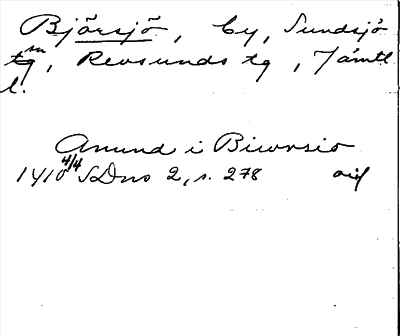 Björsjö, by, Sundsjö
sn
tg, Revsunds tg, Jämtl
l.
Anund i Biwrsio
1410 4/4 SDns 2, s. 278